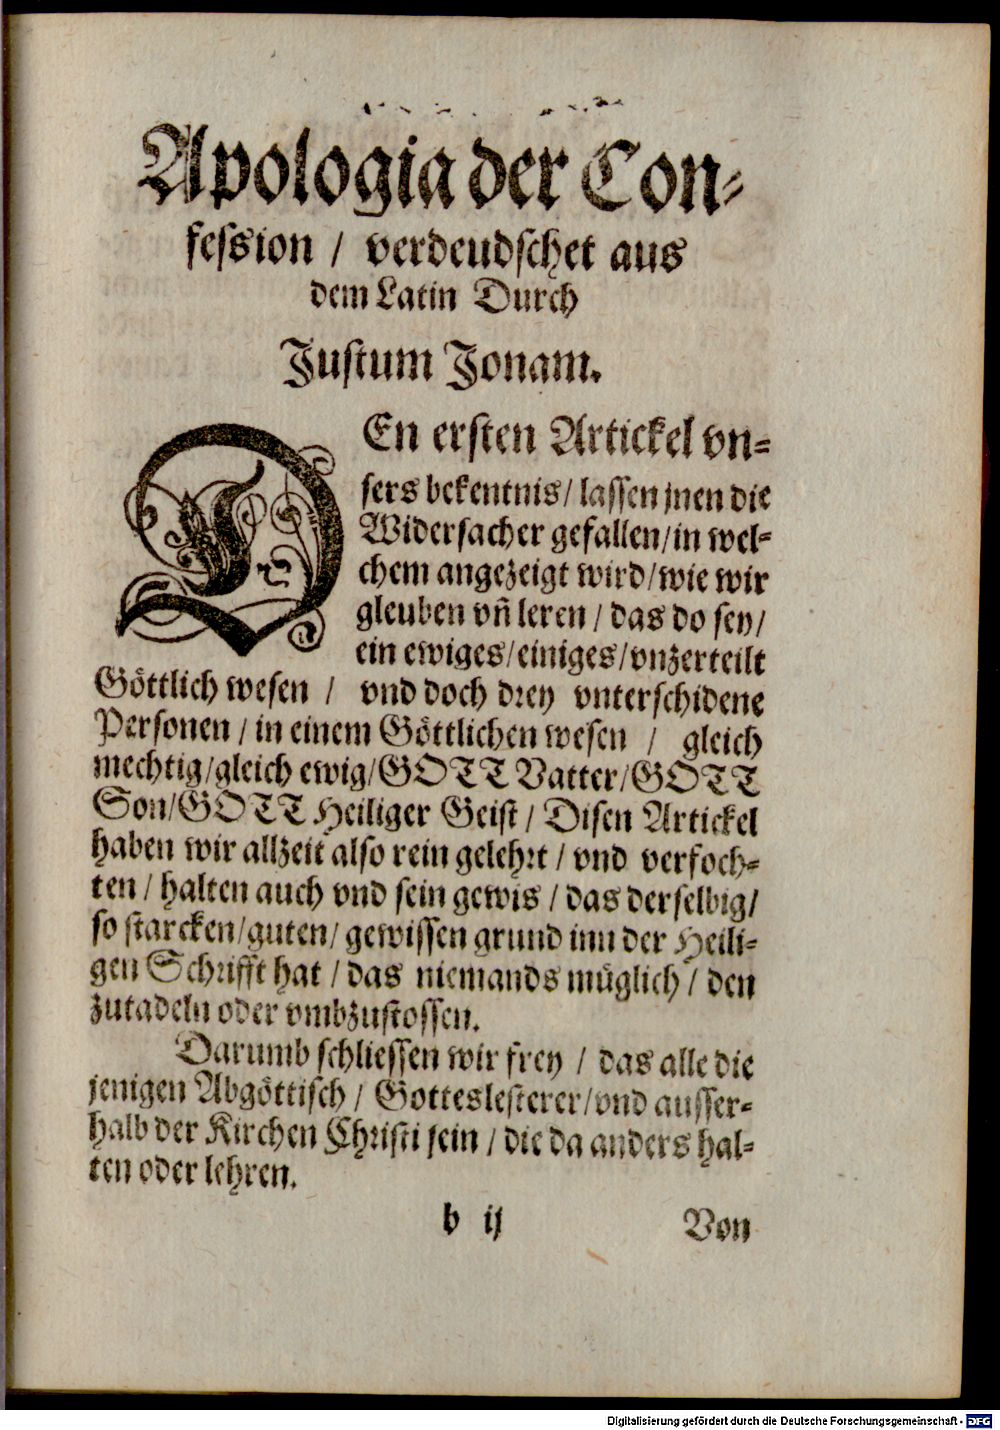 Apologia der Con⸗
fession / verdeudschet aus
dem Latin Durch
Justum Jonam.
DEn ersten Artickel vn⸗
sers bekentnis/ lassen jnen die
Widersacher gefallen/in wel⸗
chem angezeigt wird/wie wir
gleuben vñ leren / das do sey/
ein ewiges/einiges/vnzerteilt
Göttlich wesen / vnd doch drey vnterschidene
Personen / in einem Göttlichen wesen / gleich
mechtig/gleich ewig/GOTT Vatter/GOTT
Son/GOTT Heiliger Geist / Disen Artickel
haben wir allzeit also rein gelehrt / vnd verfoch⸗
ten / halten auch vnd sein gewis / das derselbig/
so starcken/guten/ gewissen grund inn der Heili⸗
gen Schrifft hat / das niemands müglich / den
zutadeln oder vmbzustossen.
Darumb schliessen wir frey / das alle die
jenigen Abgöttisch / Gotteslesterer/vnd ausser⸗
halb der Kirchen Christi sein / die da anders hal⸗
ten oder lehren.
b ij Von
Digitalisierung gefördert durch die Deutsche Forschungsgemeinschaft - DFG